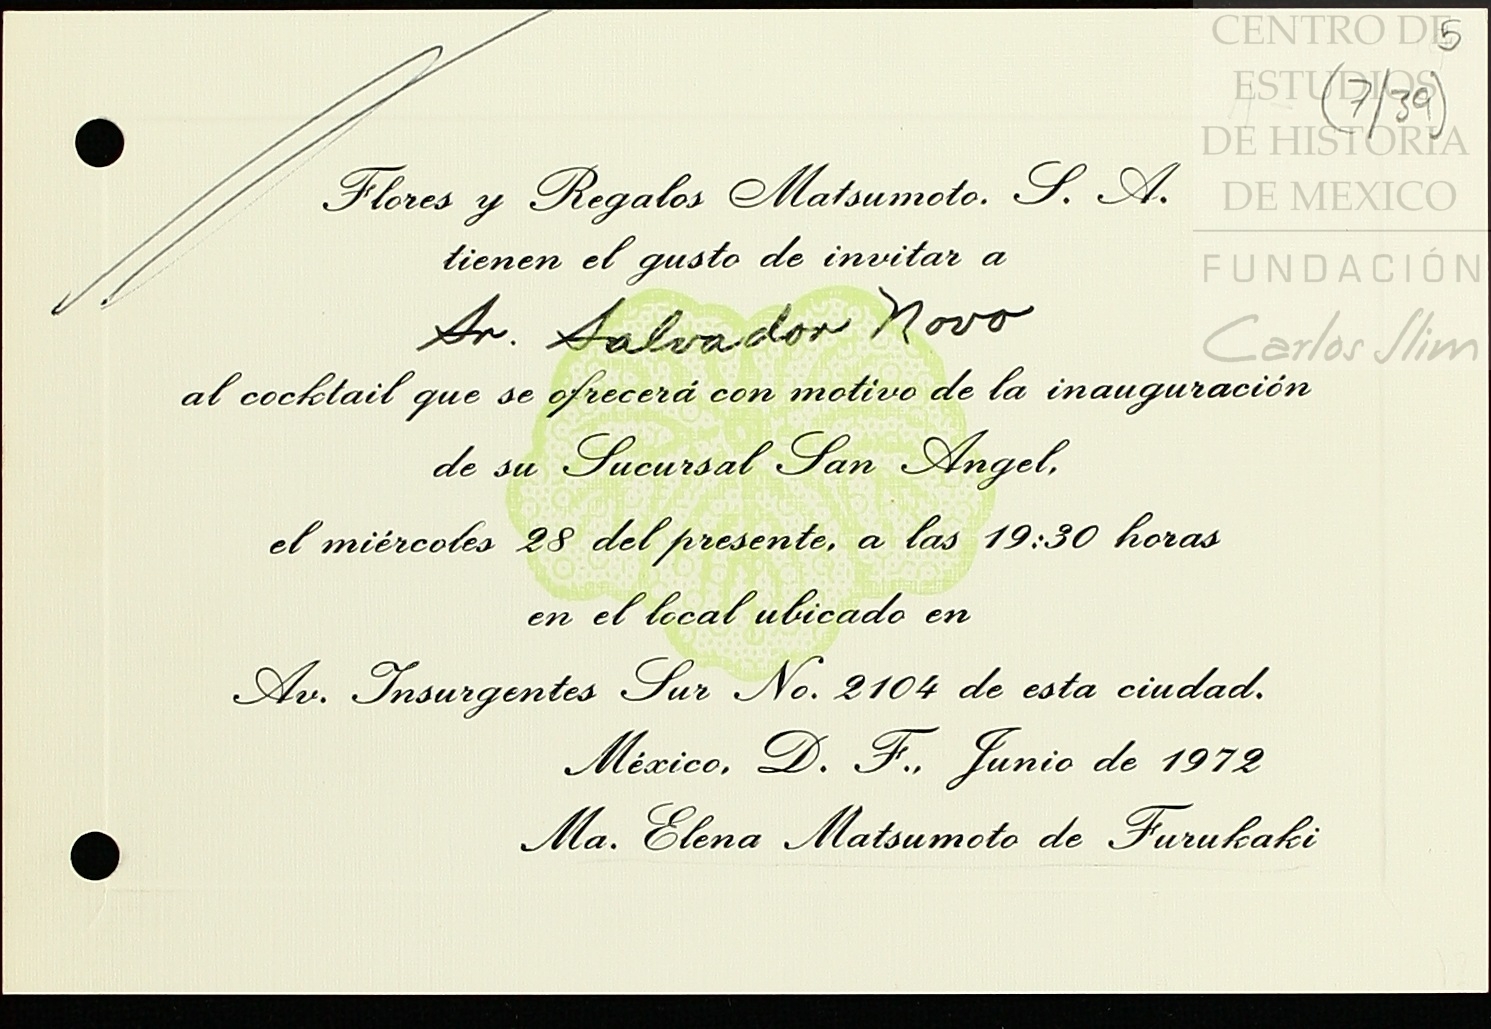 CENTRO DE
ESTUDIOS
DE HISTORIA
DE MEXICO
FUNDACIÓN
Carlos Slim
5
(7/39)
Flores y Regalos Matsumoto. S. A.
tienen el gusto de invitar a
Sr. Salvador Novo
al cocktail que se ofrecerá con motivo de la inauguración
de su Sucursal San Angel,
el miércoles 28 del presente, a las 19:30 horas
en el local ubicado en
Av. Insurgentes Sur No. 2104 de esta ciudad.
México, D. F., Junio de 1972
Ma. Elena Matsumoto de Furukaki